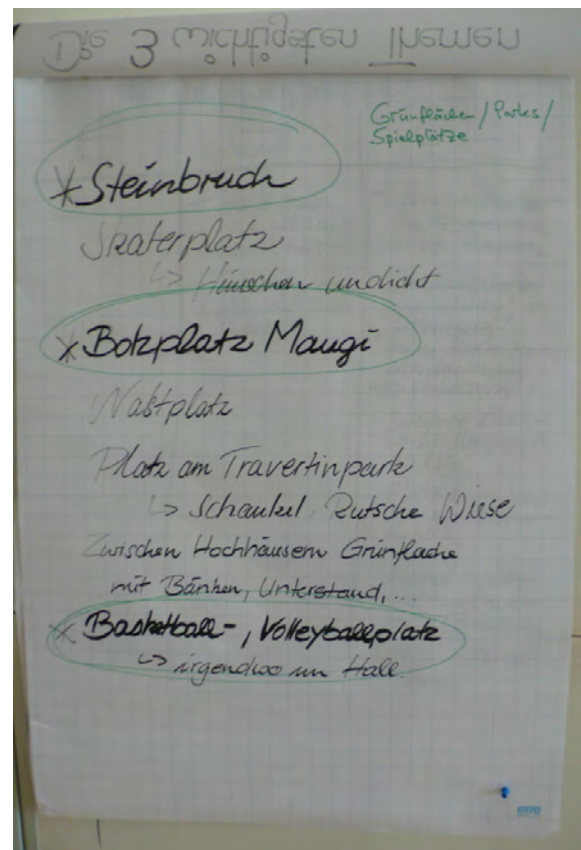 ① Die 3 wichtigsten Themen
Grünflächen / Parks /
Spielplätze
* Steinbruch
Skaterplatz
↳ Häuschen undicht
* Bolzplatz Maugi
Platz am Travertinpark
↳ Schaukel, Rutsche, Wiese
Zwischen Hochhäusern Grünfläche
mit Bänken, Unterstand, ...
* Basketball-, Volleyballplatz
↳ irgendwo im Hall.